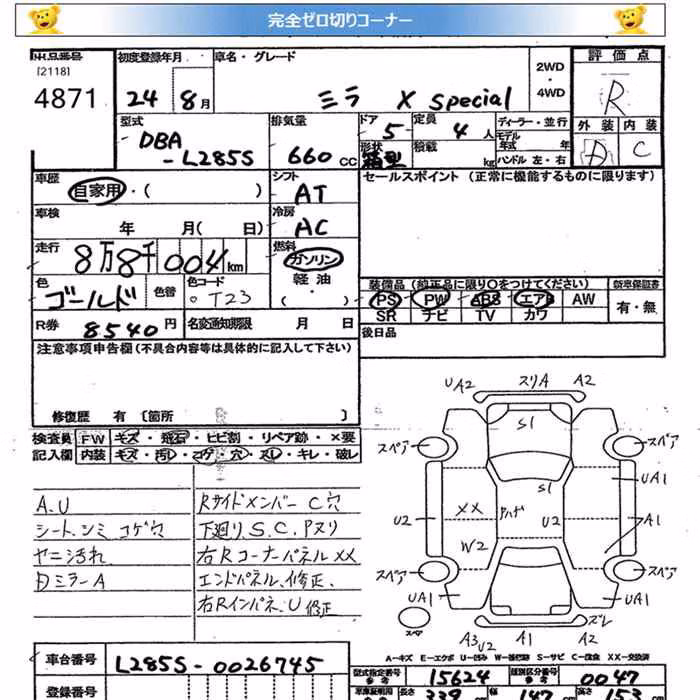 完全ゼロ切りコーナー
出品番号 初度登録年月 車名・グレード 2WD・4WD 評価点
[2118]
4871 24 8月 ミラ X Special R
型式 排気量 ドア 定員 ディーラー・並行 外装 内装
DBA-L285S 660cc 5 4人 モデル年式 年 D C
形状 箱型 積載 kg ハンドル 左・右
車歴 自家用・( ) シフト AT セールスポイント (正常に機能するものに限ります)
車検 年 月( 日) 冷房 AC
走行 8万8千004km 燃料 ガソリン・軽油・( )
色 ゴールド 色替 色コード T23 装備品 (純正品に限り○をつけてください) 新車保証書
PS PW ABS エアB AW 有・無
SR ナビ TV カワ
R券 8540円 名変通知期限 月 日 後日品
注意事項申告欄(不具合内容等は具体的に記入して下さい)
修復歴 有 [箇所 ]
検査員 FW キズ・飛石・ヒビ割・リペア跡・×要
記入欄 内装 キズ・汚レ・コゲ・穴・スレ・キレ・破レ
A.U RサイドメンバーC穴
シート、シミ コゲ穴 下廻り、S.C、Pヌリ
ヤニ汚れ 右RコーナーパネルXX
Dミラー A エンドパネル、修正、
右Rインパネ、U 修正
UA2 スリA A2
S1
スペア スペア
S1 UA1
U2 XX アハゲ U2 A1
W2
スペア スペア
UA1 UA1
スペア
A3 U2 A1 A2 ズレ
A-キズ E-エクボ U-凹み W-補修跡 S-サビ C-腐食 XX-交換済
車台番号 L285S-0026745 型式指定番号 参考 15624 類別区分番号 参考 0047
登録番号 車庫証明用 参考 長さ 339 cm 幅 147 cm 高さ 153 cm